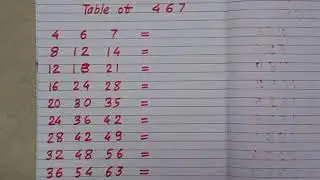 Table of 4 6 7
4 6 7 =
8 12 14 =
12 18 21 =
16 24 28 =
20 30 35 =
24 36 42 =
28 42 49 =
32 48 56 =
36 54 63 =